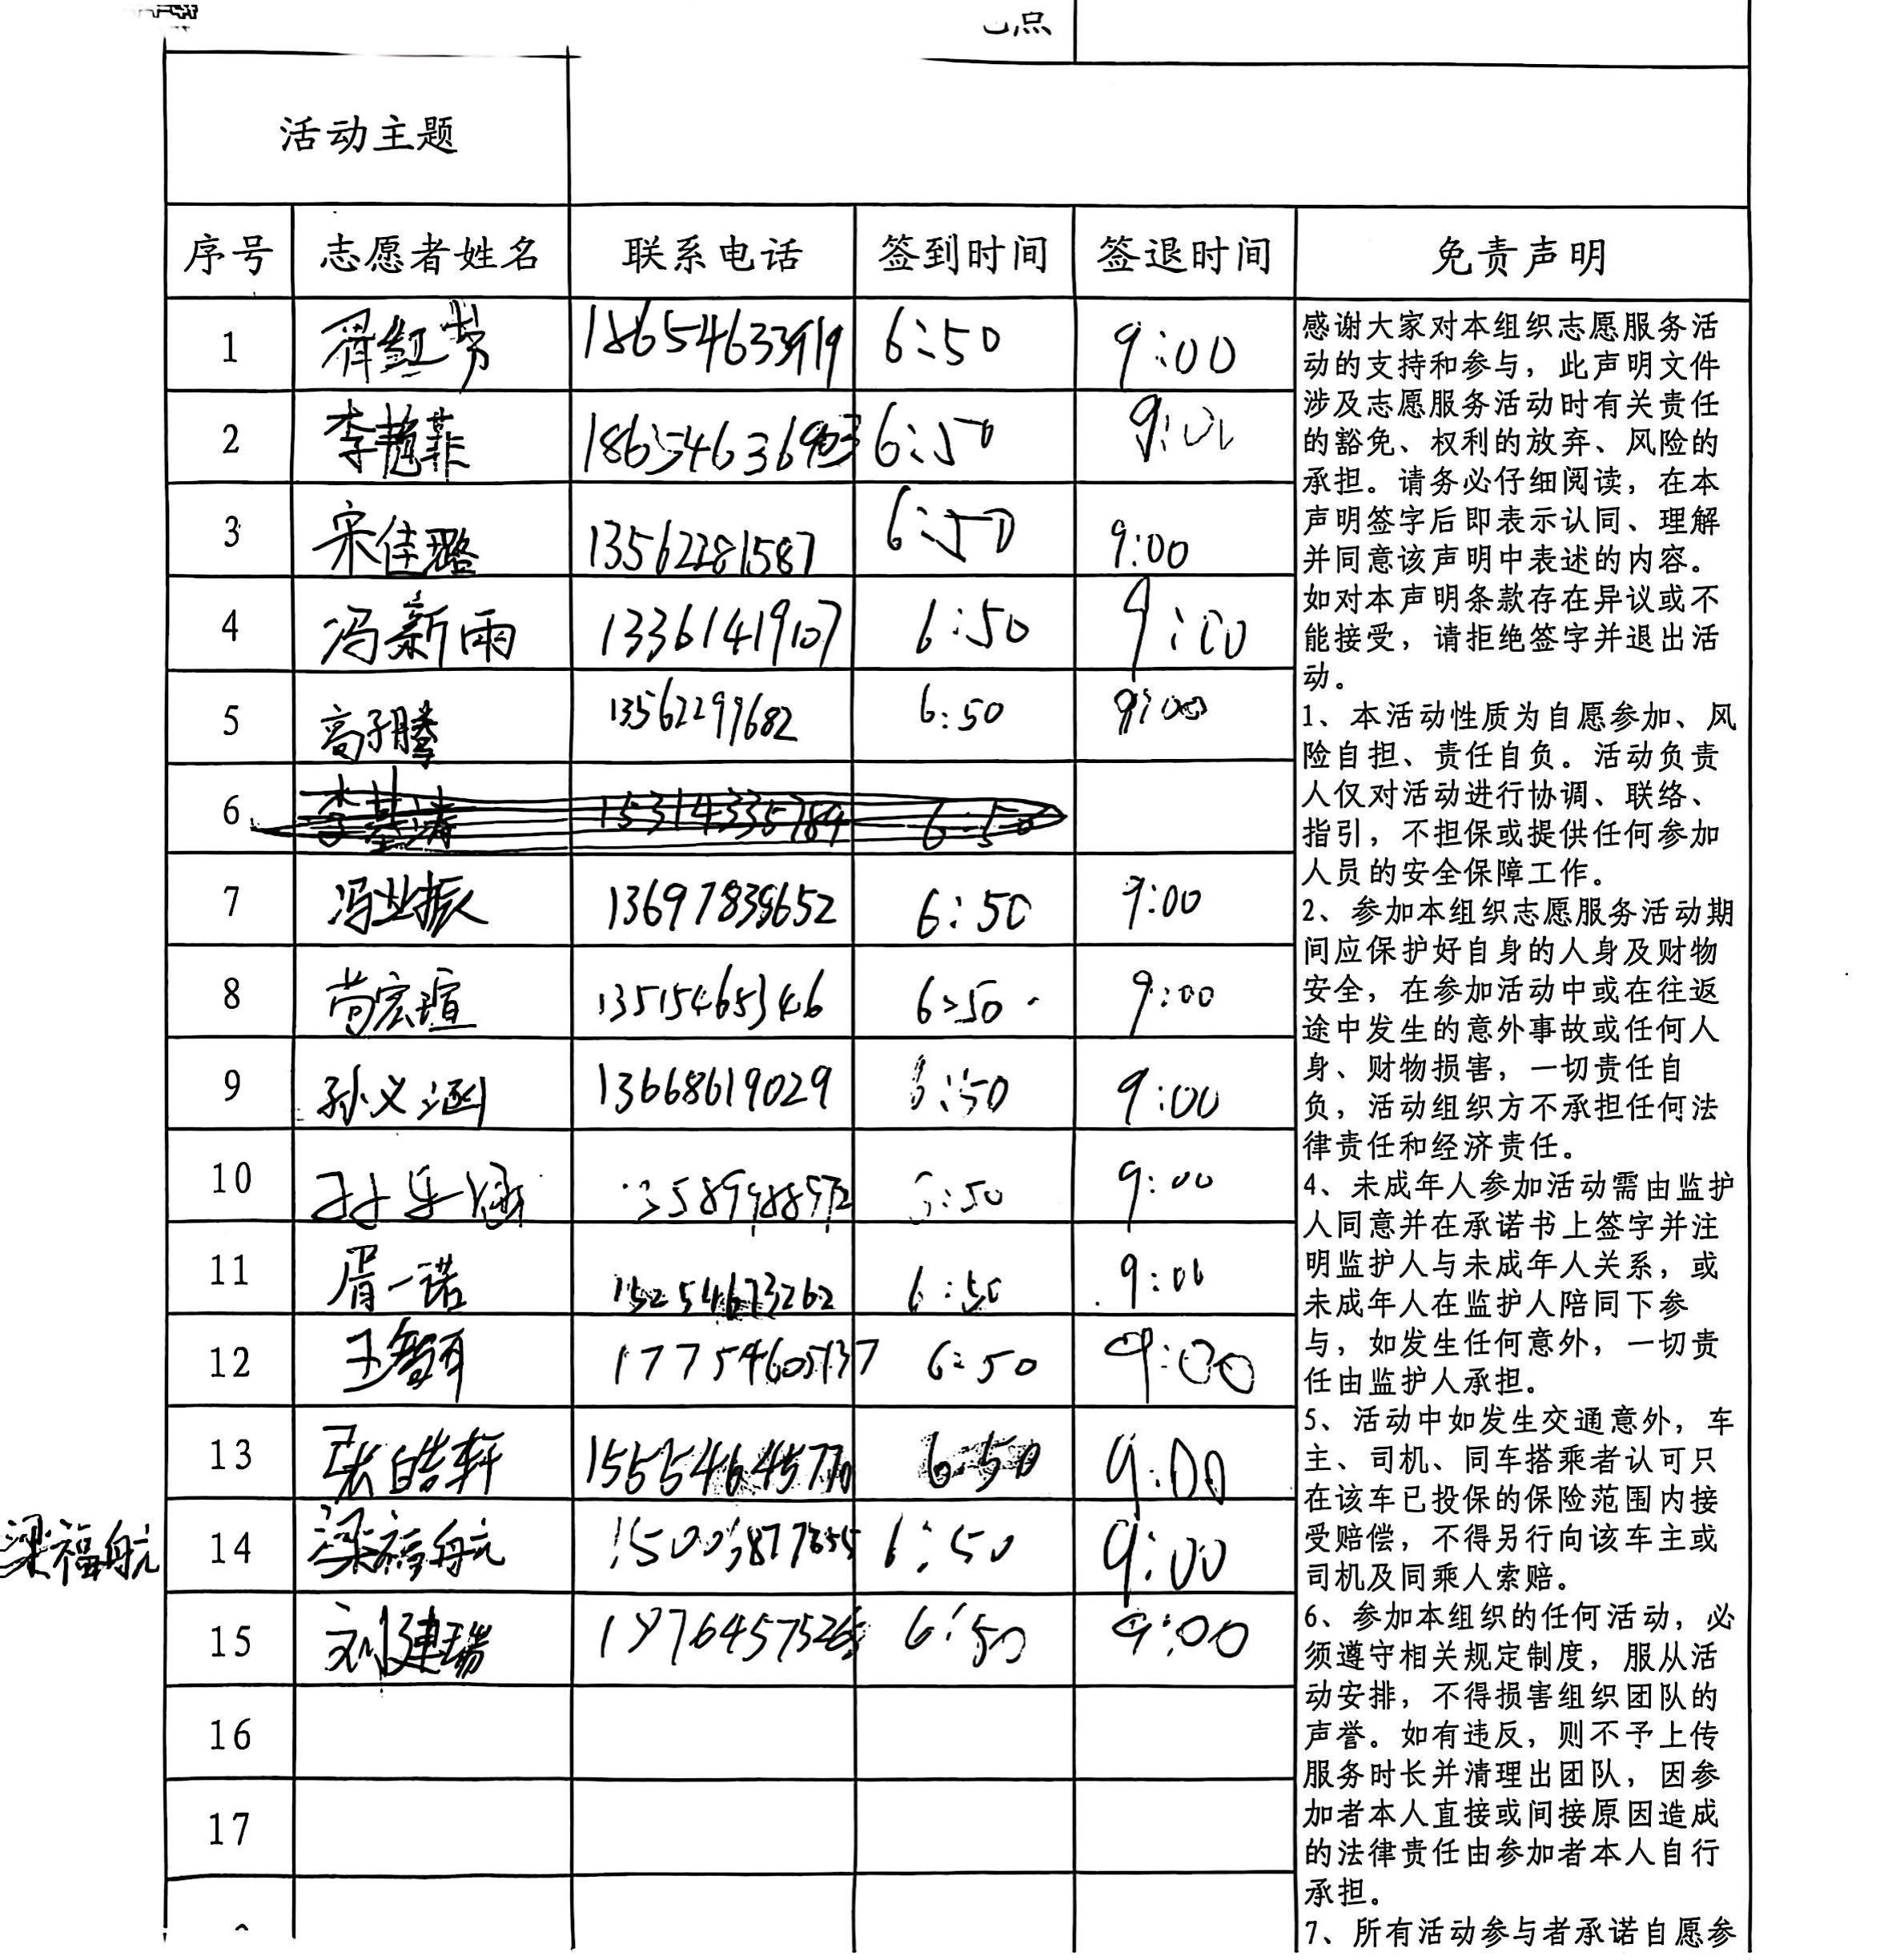 点
活动主题
序号 志愿者姓名 联系电话 签到时间 签退时间 免责声明
1 18654633919 6:50 9:00
2 李艳菲 6:50 9:00
3 宋佳璐 13562281587 6:50 9:00
4 冯新雨 13361419107 6:50 9:00
5 高子腾 13562299682 6:50 9:00
6 15314335784 6:50
7 冯业振 6:50 9:00
8 苟宏瑄 13515465346 6:50 9:00
9 孙义涵 13668619029 6:50 9:00
10 孙乐涵 6:50 9:00
11 胥一诺 15254673262 6:50 9:00
12 17754605137 6:50 9:00
13 张皓轩 6:50 9:00
梁福航 14 梁福航 6:50 9:00
15 刘建瑞 6:50 9:00
16
17
感谢大家对本组织志愿服务活
动的支持和参与，此声明文件
涉及志愿服务活动时有关责任
的豁免、权利的放弃、风险的
承担。请务必仔细阅读，在本
声明签字后即表示认同、理解
并同意该声明中表述的内容。
如对本声明条款存在异议或不
能接受，请拒绝签字并退出活
动。
1、本活动性质为自愿参加、风
险自担、责任自负。活动负责
人仅对活动进行协调、联络、
指引，不担保或提供任何参加
人员的安全保障工作。
2、参加本组织志愿服务活动期
间应保护好自身的人身及财物
安全，在参加活动中或在往返
途中发生的意外事故或任何人
身、财物损害，一切责任自
负，活动组织方不承担任何法
律责任和经济责任。
4、未成年人参加活动需由监护
人同意并在承诺书上签字并注
明监护人与未成年人关系，或
未成年人在监护人陪同下参
与，如发生任何意外，一切责
任由监护人承担。
5、活动中如发生交通意外，车
主、司机、同车搭乘者认可只
在该车已投保的保险范围内接
受赔偿，不得另行向该车主或
司机及同乘人索赔。
6、参加本组织的任何活动，必
须遵守相关规定制度，服从活
动安排，不得损害组织团队的
声誉。如有违反，则不予上传
服务时长并清理出团队，因参
加者本人直接或间接原因造成
的法律责任由参加者本人自行
承担。
7、所有活动参与者承诺自愿参